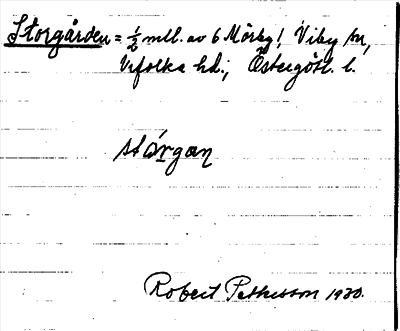 Storgården = ½ mtl. av 6 Mörby, Viby sn,
Vifolka hd., Östergötl. l.
stórgan
Robert Pettersson 1930.